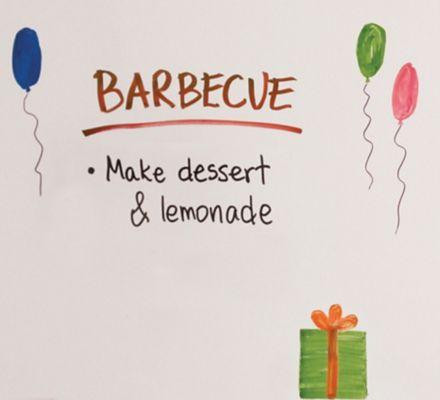 BARBECUE
• Make dessert
& lemonade